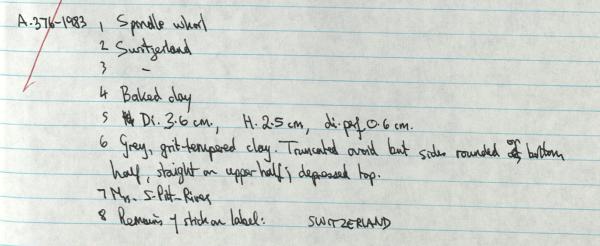 A.376-1983 1 Spindle whorl
2 Switzerland
3 -
4 Baked clay
5 Di. 3.6 cm, H. 2.5 cm, di. perf 0.6 cm.
6 Grey, grit-tempered clay. Truncated ovoid but sides rounded on bottom
half, staight on upper half; depressed top.
7 Mrs. S. Pitt-Rivers
8 Remains of stick on label: SWITZERLAND